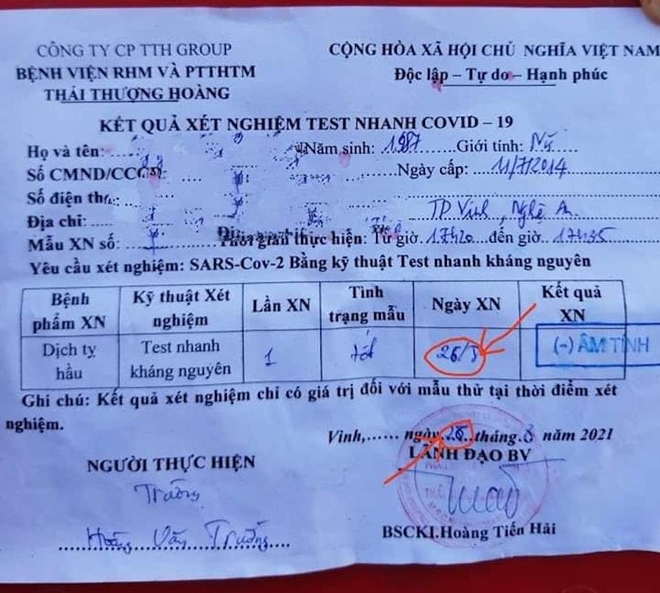 CÔNG TY CP TTH GROUP
BỆNH VIỆN RHM VÀ PTTHTM
THÁI THƯỢNG HOÀNG
CỘNG HÒA XÃ HỘI CHỦ NGHĨA VIỆT NAM
Độc lập – Tự do – Hạnh phúc
KẾT QUẢ XÉT NGHIỆM TEST NHANH COVID – 19
Họ và tên: Năm sinh: 1987 Giới tính: Nữ
Số CMND/CCCD: Ngày cấp: 11/7/2014
Số điện thoại:
Địa chỉ: TP Vinh, Nghệ An
Mẫu XN số: Thời gian thực hiện: Từ giờ 17h20 đến giờ 17h35
Yêu cầu xét nghiệm: SARS-Cov-2 Bằng kỹ thuật Test nhanh kháng nguyên
Bệnh phẩm XN Kỹ thuật Xét nghiệm Lần XN Tình trạng mẫu Ngày XN Kết quả XN
Dịch tỵ hầu Test nhanh kháng nguyên 1 tốt (-) ÂM TÍNH
Ghi chú: Kết quả xét nghiệm chỉ có giá trị đối với mẫu thử tại thời điểm xét
nghiệm.
Vinh,...... ngày tháng 8 năm 2021
NGƯỜI THỰC HIỆN
LÃNH ĐẠO BV
Trường
Hoàng Văn Trường
BSCKI.Hoàng Tiến Hải